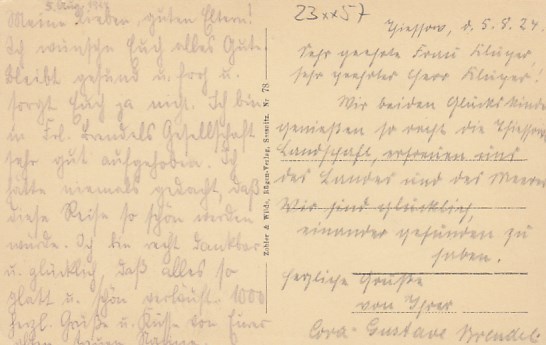 5. Aug. 1924
Meine lieben, guten Eltern!
Ich wünsche Euch alles Gute
bleibt gesund u. froh u.
sorgt Euch ja nicht. Ich bin
in Frl. Brendels Gesellschaft
sehr gut aufgehoben. Ich
hätte niemals gedacht, daß
diese Reise so schön werden
würde. Ich bin recht dankbar
u. glücklich, daß alles so
glatt u. schön verläuft. 1000
herzl. Grüße u. Küsse von Eurer
Zobler & Wilde, Rügen-Verlag, Nr. 78
23xx57
Thiessow, d. 5.8.24
Sehr geehrte Frau Klüger,
sehr geehrter Herr Klüger!
Wir beiden Glückskinder
genießen so recht die Thiessower
Landschaft, erfreuen uns
des Landes und des Meeres
Wir sind glücklich,
einander gefunden zu
haben.
Herzliche Grüße
von Ihrer
Cora-Gustave Brendel